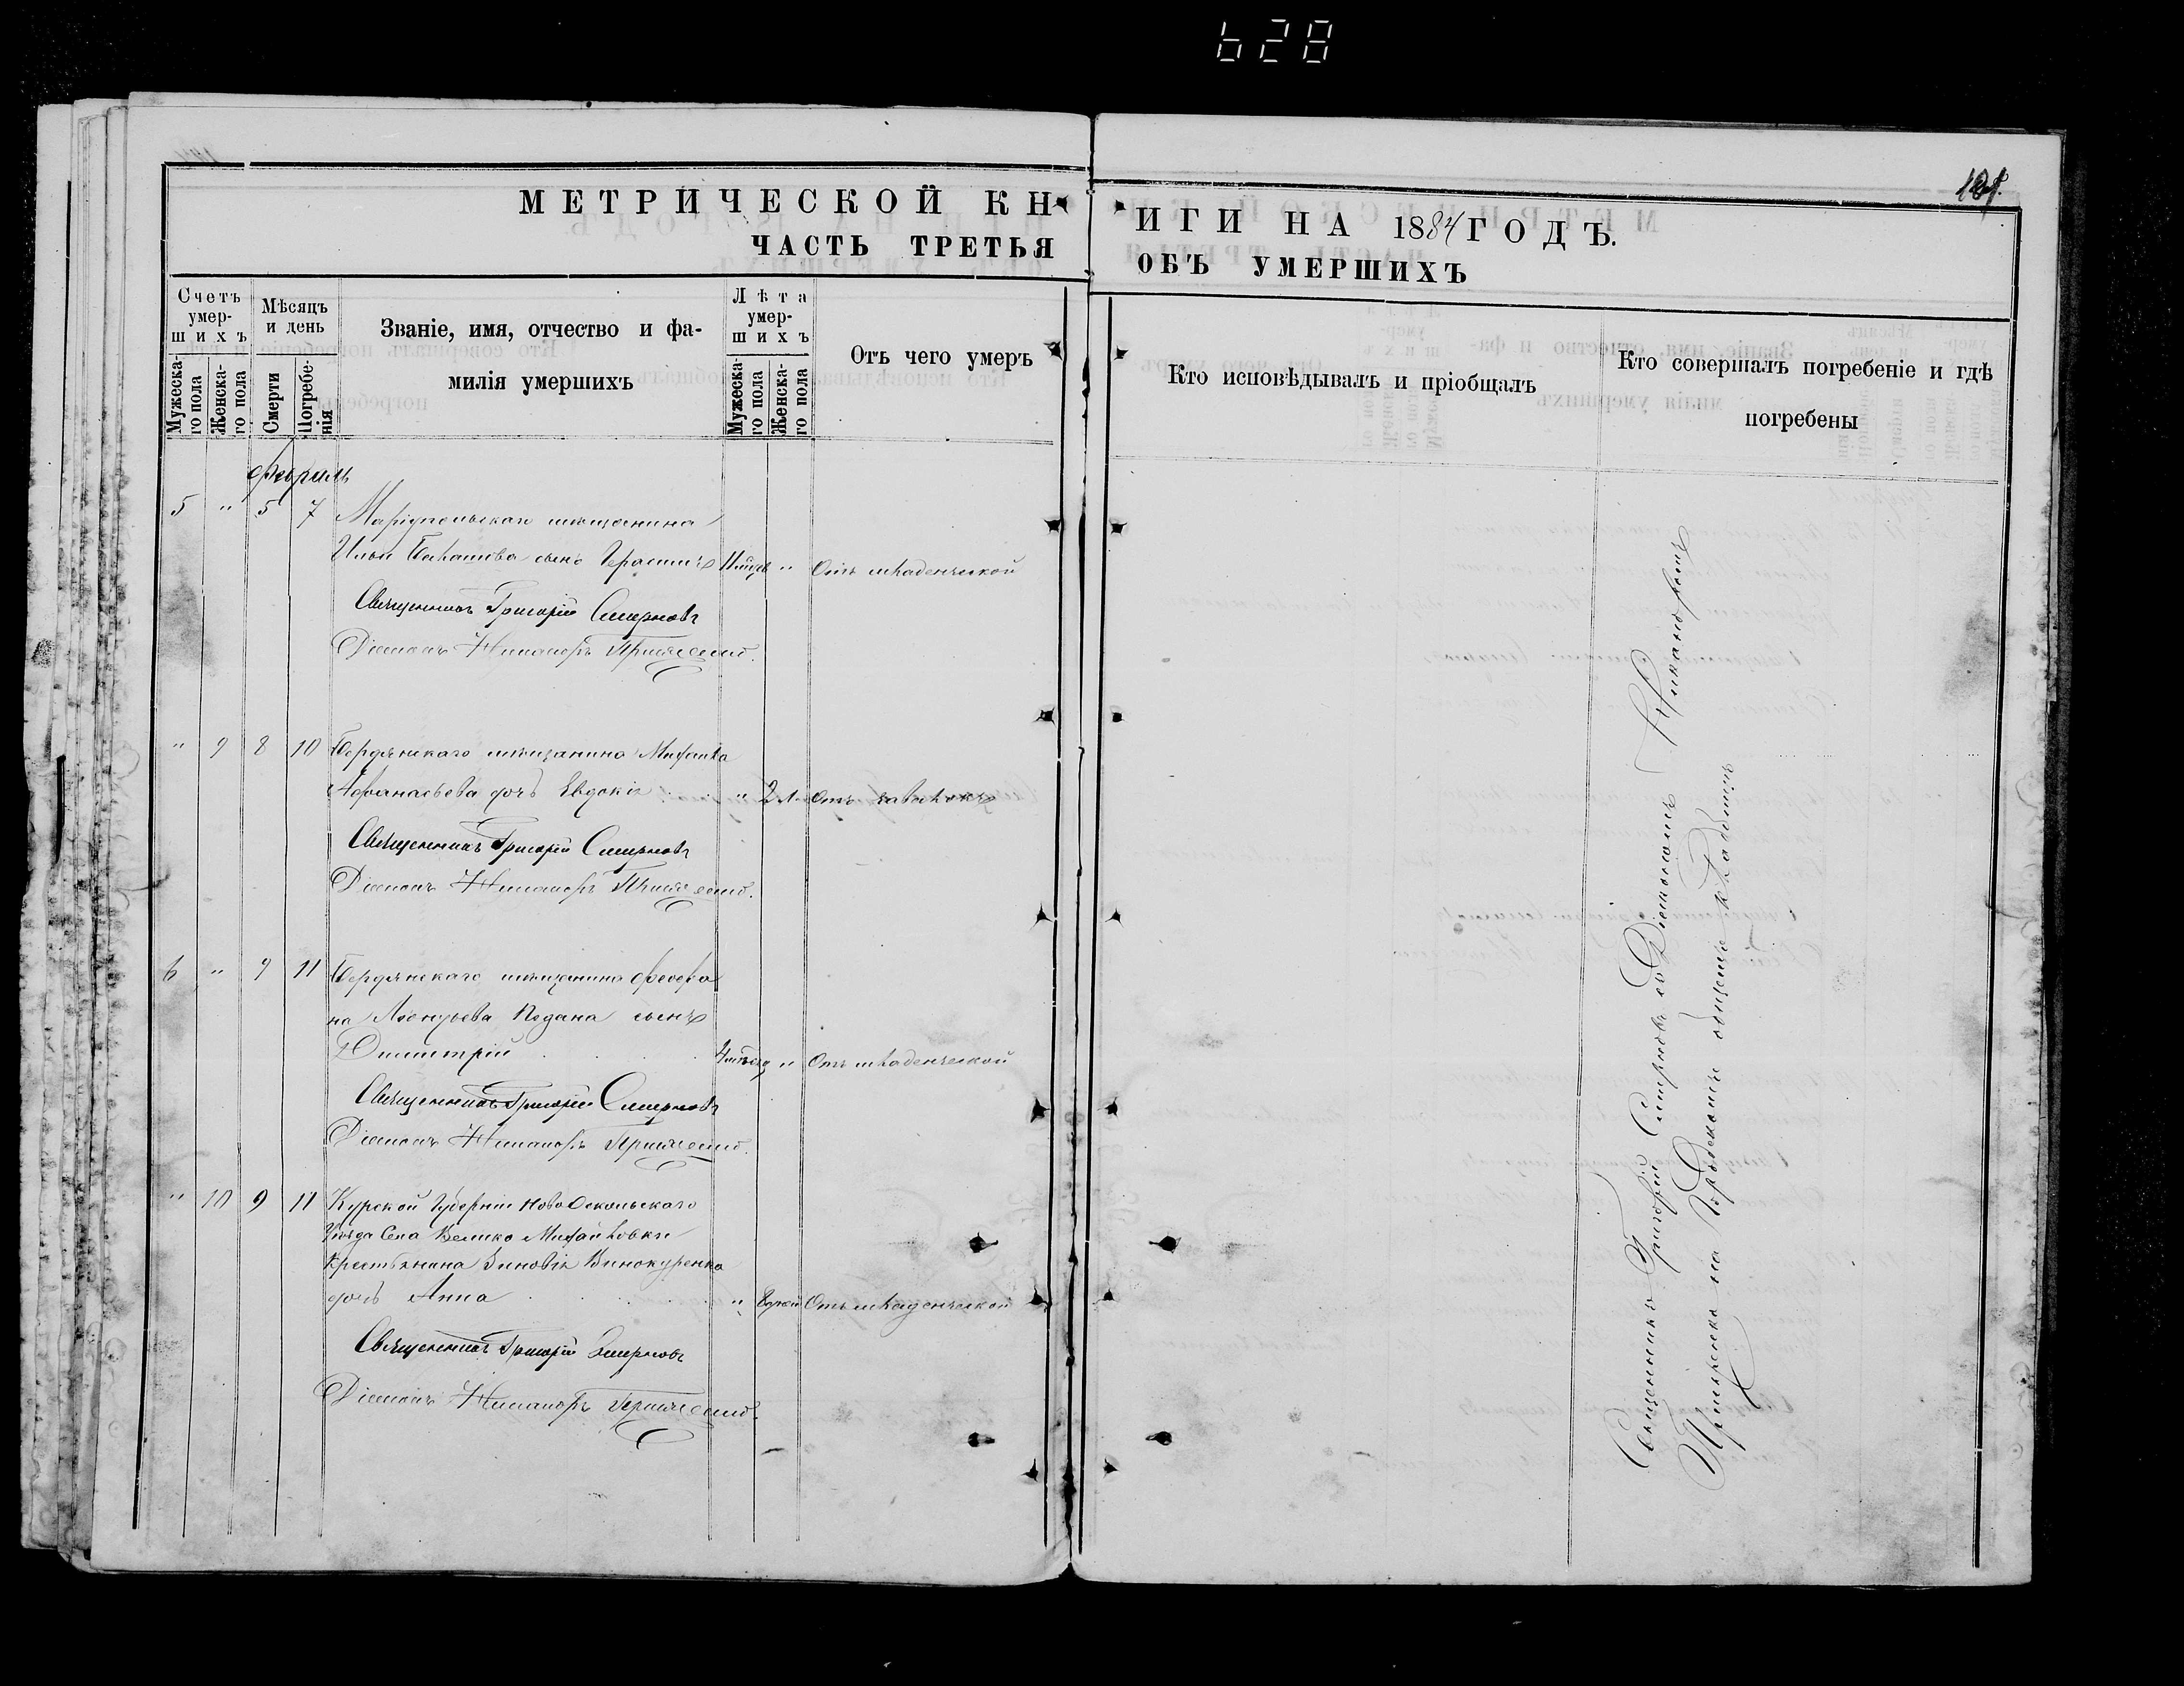 628
МЕТРИЧЕСКОЙ КН
ЧАСТЬ ТРЕТЬЯ
Счетъ умер-
шихъ
Мужеска-
го пола
Женска-
го пола
Мѣсяцъ
и день
Смерти
Погребе-
нія
Званіе, имя, отчество и фа-
милія умершихъ
Лѣта
умер-
шихъ
Мужеска-
го пола
Женска-
го пола
Отъ чего умеръ
Февраль
5 " 5 7 Маріупольскаго мѣщанина
Ильи сынъ Герасимъ " Отъ младенческой
Священникъ Григорій Смирновъ
Діаконъ Никаноръ
" 9 8 10 Бердянскаго мѣщанина Михаила
Афанасьева дочь Евдокія " 2 л. Отъ
Священникъ Григорій Смирновъ
Діаконъ Никаноръ
6 " 9 11 Бердянскаго мѣщанина Феофа
на Леонтьева сынъ
Димитрій " Отъ младенческой
Священникъ Григорій Смирновъ
Діаконъ Никаноръ
" 10 9 11 Курской Губерніи Ново Оскольскаго
Уѣзда Села Велико Михайловки
Крестьянина Зиновія Винокуренка
дочь Анна " 8 дней Отъ младенческой
Священникъ Григорій Смирновъ
Діаконъ Никаноръ
ИГИ НА 1884 ГОДЪ.
ОБЪ УМЕРШИХЪ
Кто исповѣдывалъ и пріобщалъ
Кто совершалъ погребеніе и гдѣ
погребены
Священникъ Григорій Смирновъ съ Діакономъ Никаноромъ
на Городскомъ общемъ кладбищѣ